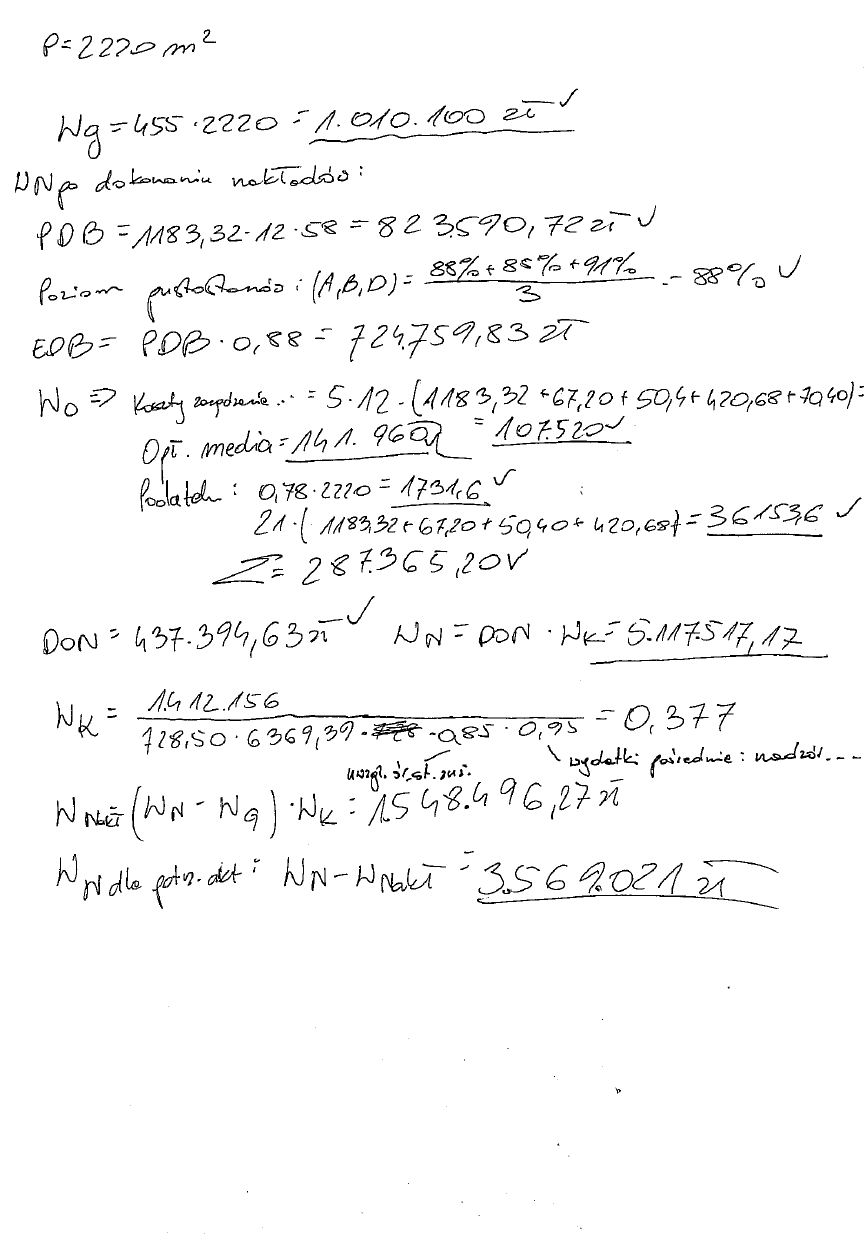 P=2220 m²
Wg = 455·2220 = 1.010.100 zł ✓
WN po dokonaniu nakładów:
PDB = 1183,32·12·58 = 823.590,72 zł ✓
Poziom pustostanów: (A,B,D) = (88%+85%+91%)/3 = 88% ✓
EDB = PDB·0,88 = 724.759,83 zł
WO => Koszty zarządzania .. = 5·12·(1183,32+67,20+50,4+420,68+70,40)=
= 107.520 ✓
Opł. media = 141.960
Podatek: 0,78·2220 = 1731,6 ✓
21·(1183,32+67,20+50,40+420,68) = 36153,6 ✓
Σ = 287.365,20 ✓
DON = 437.394,63 zł ✓ WN = DON·WK = 5.117.517,17
WK = 1.412.156 / (728,50·6369,39·0,85·0,95) = 0,377
uwzgl. śr. st. zuż. \ wydatki pośrednie: nadzór...
WNakł (WN - WG)·WK = 1.548.496,27 zł
WN dla potrz. akt: WN - WNakł = 3.569.021 zł